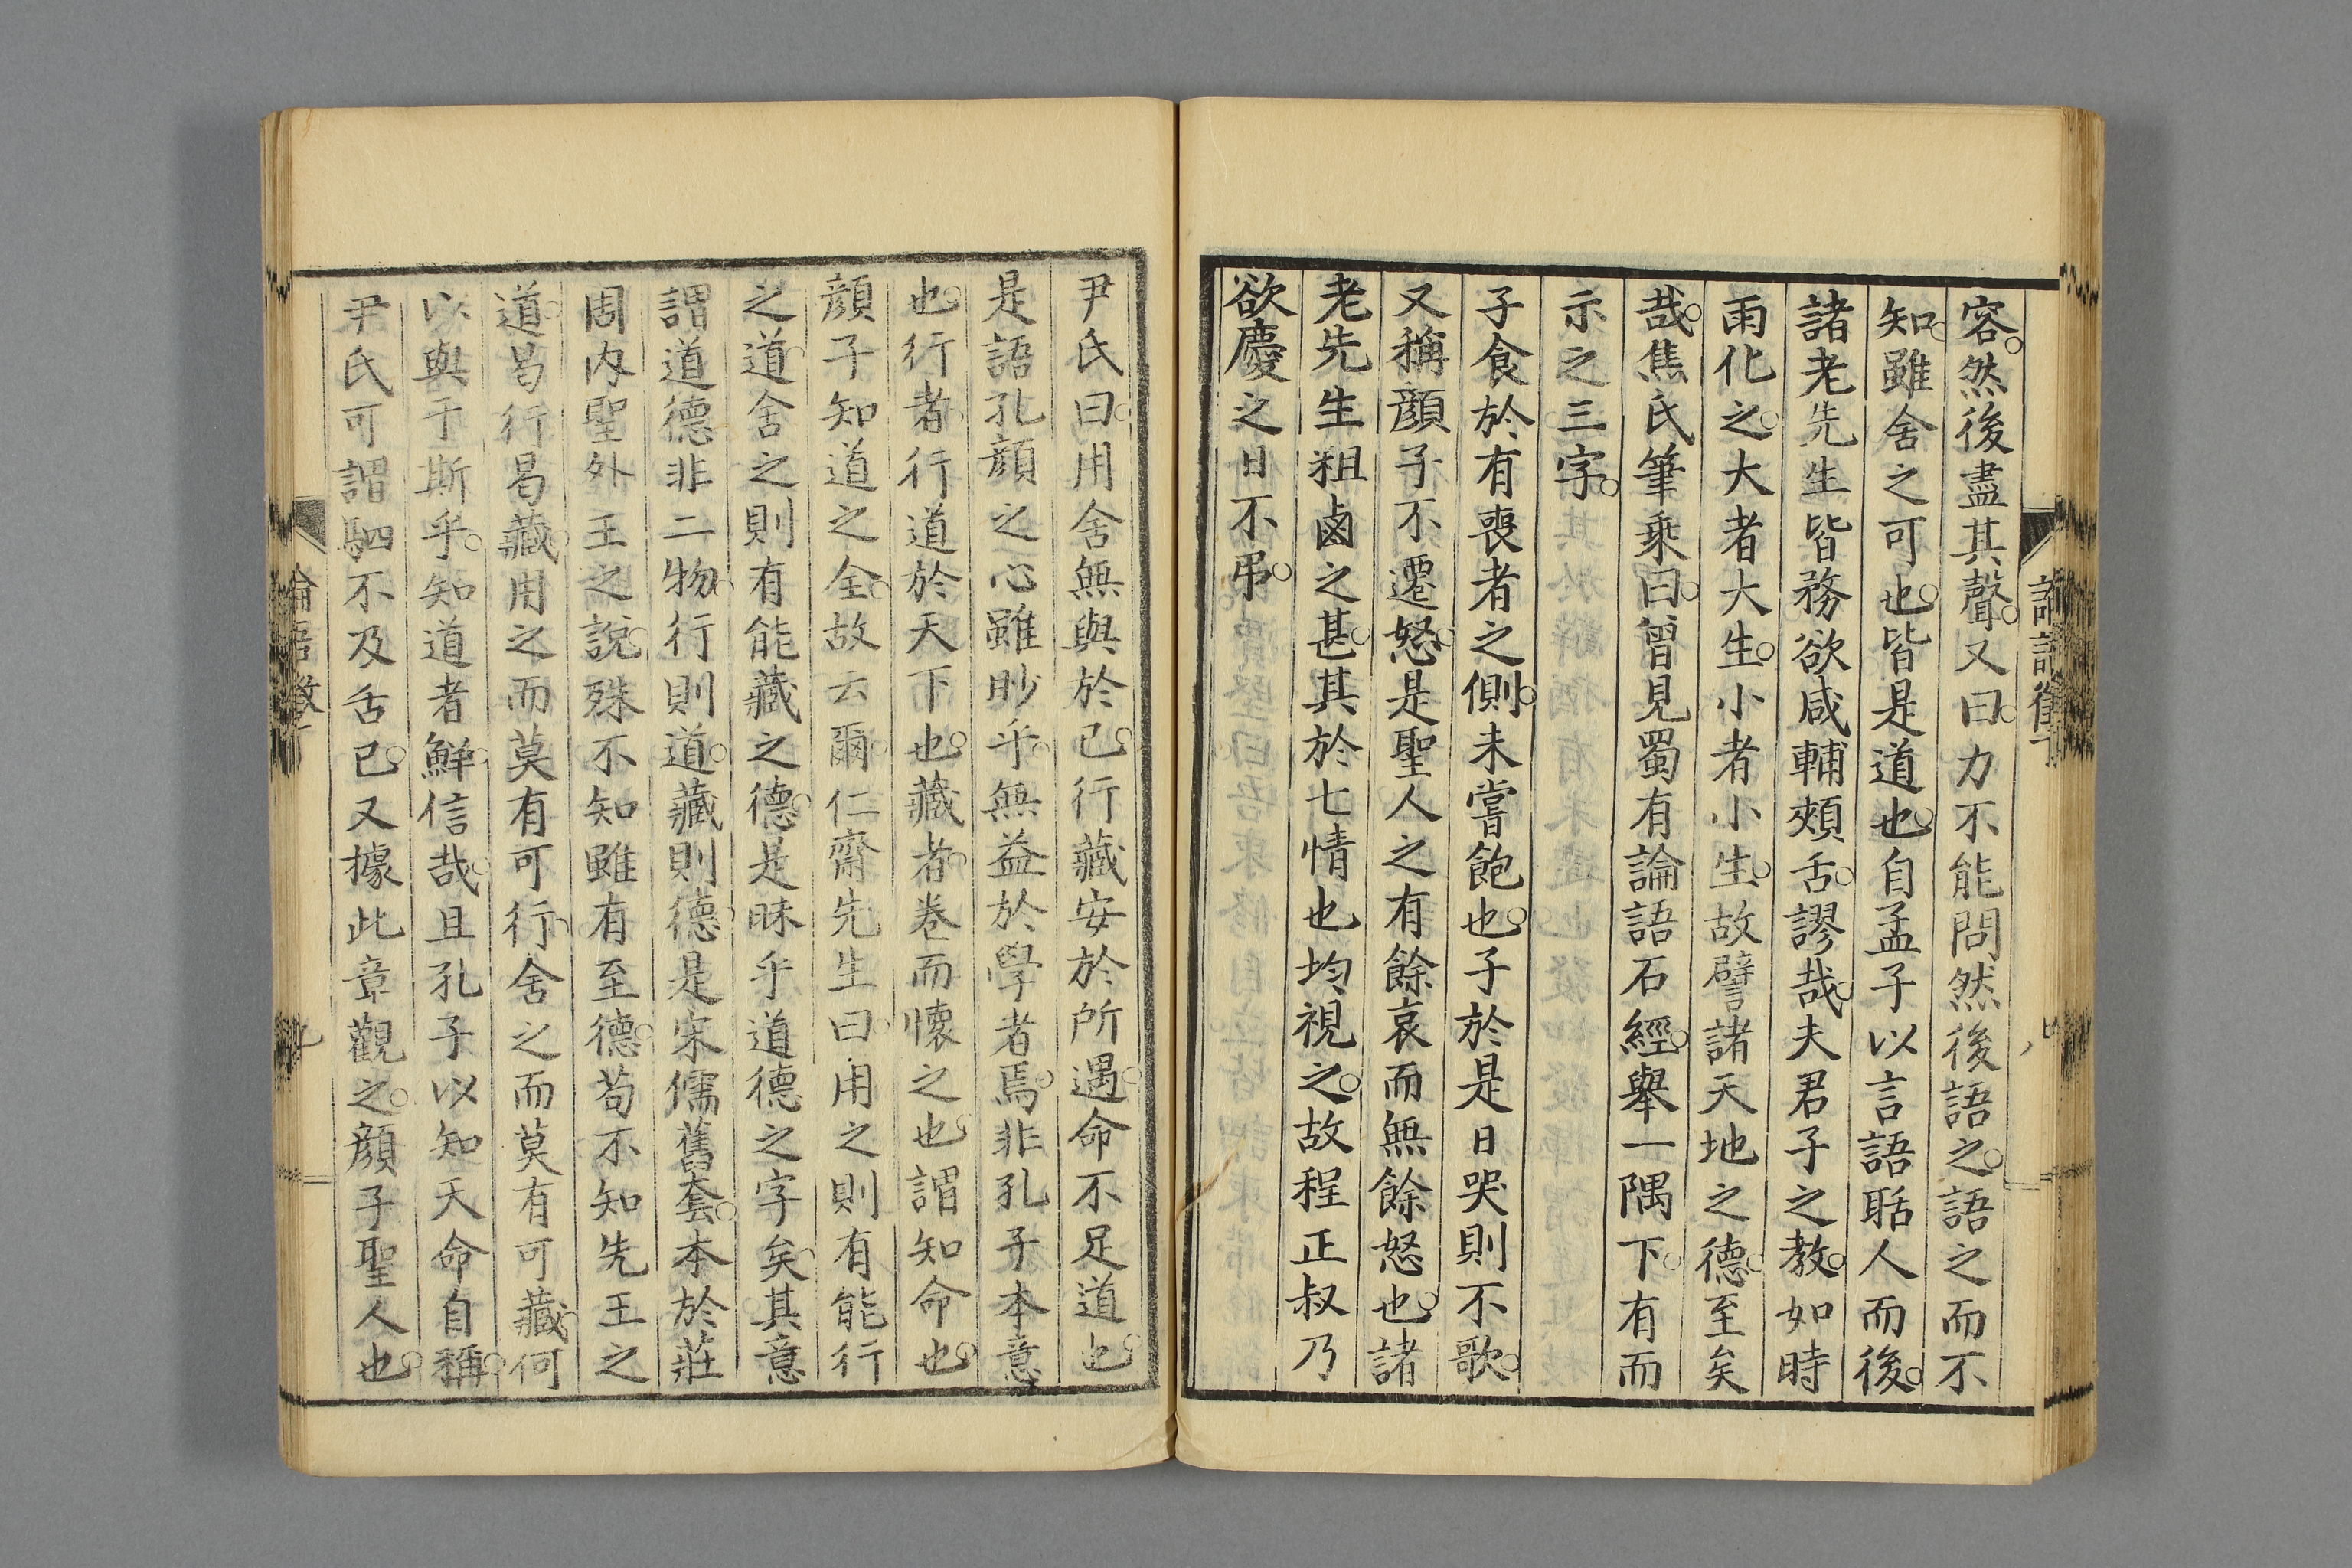 容。然後盡其聲。又曰。力不能問然後語之。語之而不
知。雖舍之可也。皆是道也。自孟子以言語聒人而後。
諸老先生皆務欲咸輔頰舌。謬哉。夫君子之教。如時
雨化之。大者大生。小者小生。故譬諸天地之德。至矣
哉。焦氏筆乗曰。曾見蜀有論語石經。舉一隅下。有而
示之三字。
子食於有喪者之側。未嘗飽也。子於是日哭則不歌。
又稱顏子不遷怒。是聖人之有餘哀而無餘怒也。諸
老先生粗鹵之甚。其於七情也均視之。故程正叔乃
欲慶之日不弔。
尹氏曰。用舍無與於己。行藏安於所遇。命不足道也。
是語孔顏之心雖妙乎。無益於學者焉。非孔子本意
也。行者。行道於天下也。藏者。卷而懷之也。謂知命也。
顏子知道之全。故云爾。仁齋先生曰。用之則有能行
之道。舍之則有能藏之德。是昧乎道德之字矣。其意
謂道德非二物。行則道。藏則德。是宋儒舊套。本於莊
周内聖外王之說。殊不知雖有至德。苟不知先王之
道。曷行曷藏。用之而莫有可行。舍之而莫有可藏。何
以與于斯乎。知道者鮮。信哉。且孔子以知天命自稱。
尹氏可謂駟不及舌已。又據此章觀之。顏子聖人也。
論語徵丁